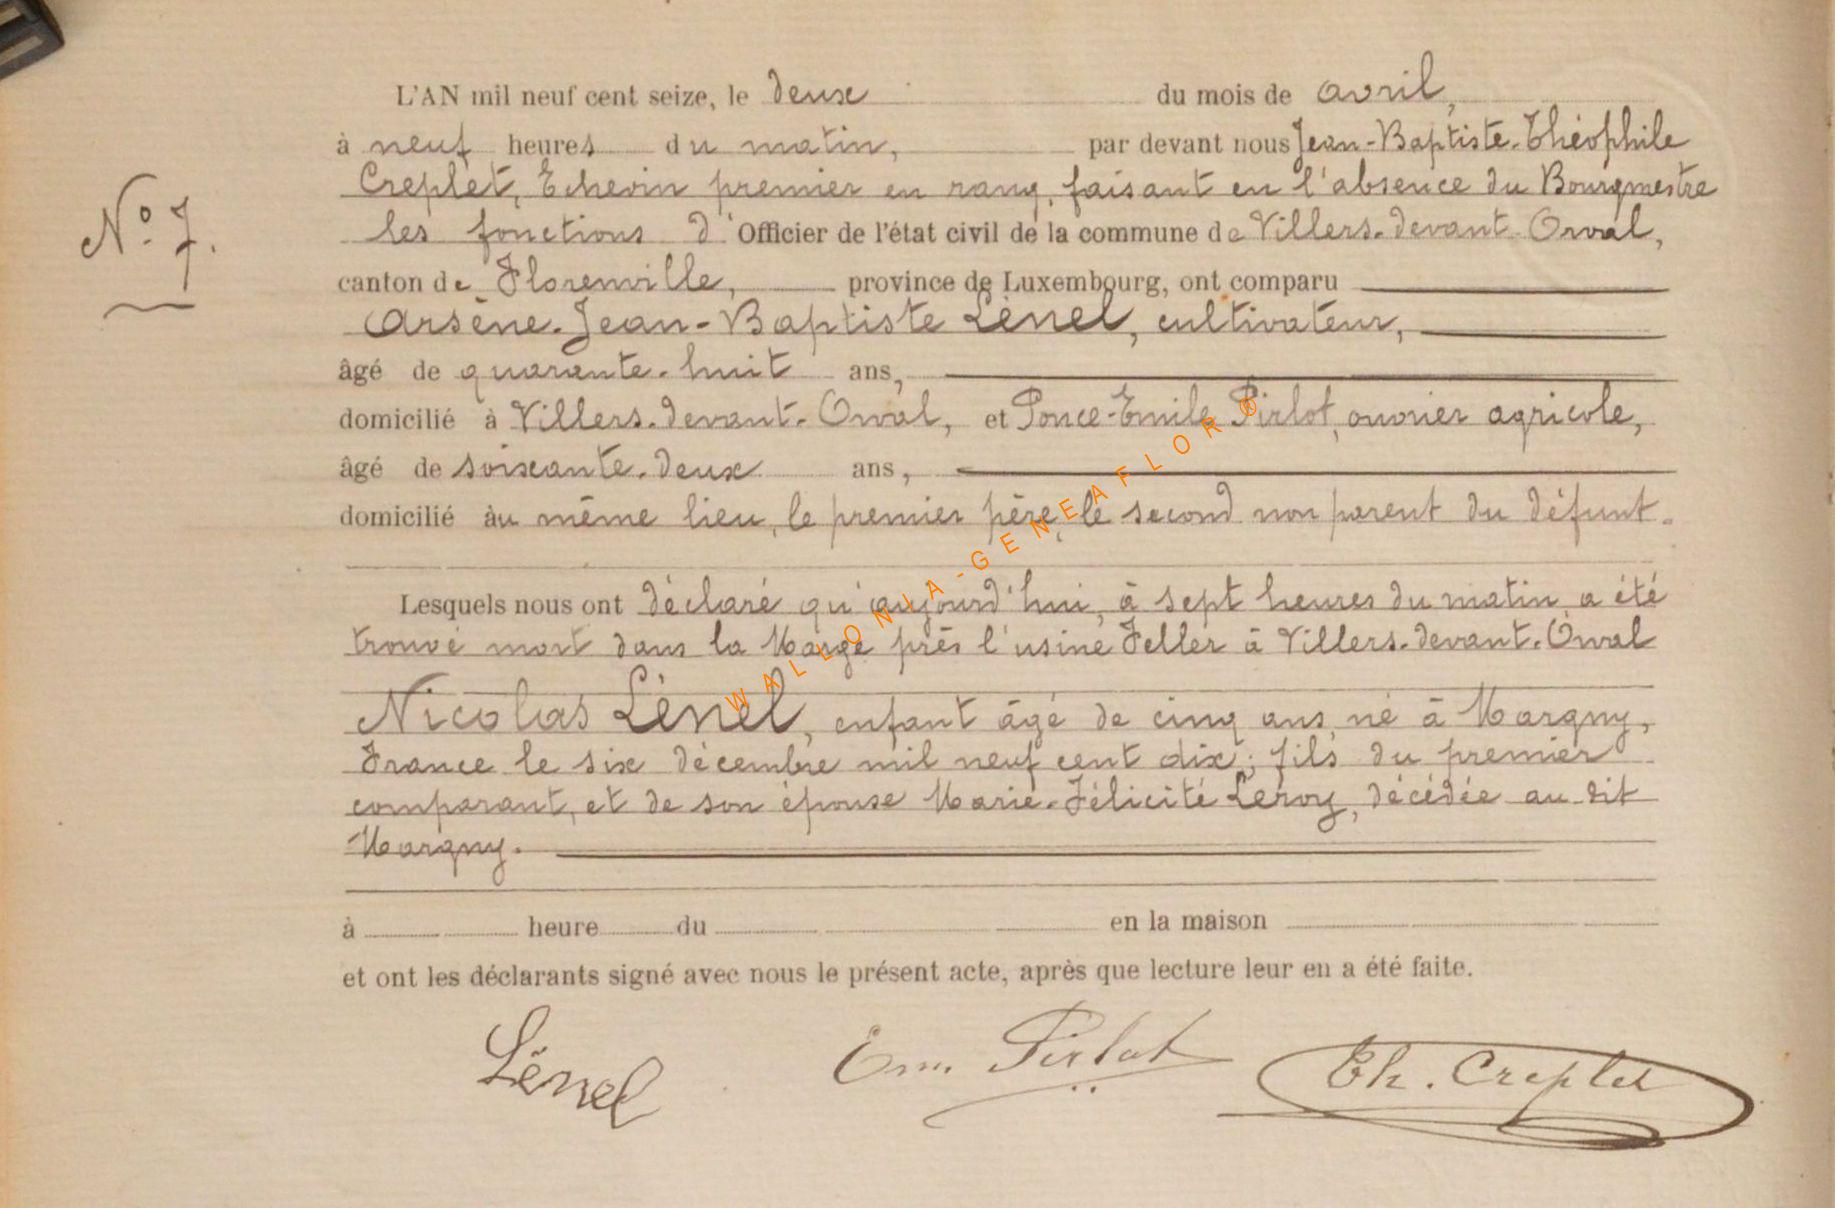 L'AN mil neuf cent seize, le deux du mois de avril,
à neuf heures du matin, par devant nous Jean-Baptiste-Théophile
Creplet, Echevin premier en rang, faisant en l'absence du Bourgmestre
les fonctions d'Officier de l'état civil de la commune de Villers-devant-Orval,
N° 7.
canton de Florenville, province de Luxembourg, ont comparu
Arsène-Jean-Baptiste Lénel, cultivateur,
âgé de quarante-huit ans,
domicilié à Villers-devant-Orval, et Ponce-Emile Pirlot, ouvrier agricole,
âgé de soixante-deux ans,
domicilié au même lieu, le premier père, le second non parent du défunt.
Lesquels nous ont déclaré qu'aujourd'hui, à sept heures du matin, a été
trouvé mort dans la Marge près l'usine Feller à Villers-devant-Orval
Nicolas Lénel, enfant âgé de cinq ans, né à Margny,
France le six décembre mil neuf cent dix; fils du premier
comparant, et de son épouse Marie-Félicité Leroy, décédée au dit
Margny.
à heure du en la maison
et ont les déclarants signé avec nous le présent acte, après que lecture leur en a été faite.
Lénel Em. Pirlot Th. Creplet
WALLONIA-GENEAFLOR ©